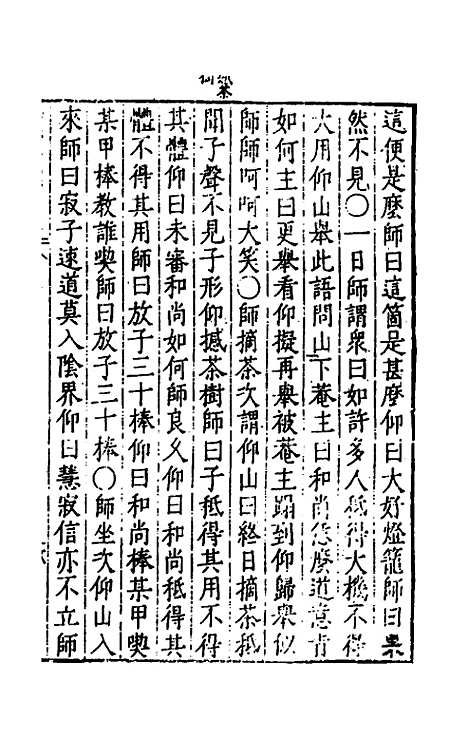 這便是麼師曰這箇是甚麼仰曰大好燈籠師曰果
然不見○一日師謂眾曰如許多人秪得大機不得
大用仰山舉此語問山下菴主曰和尚恁麼道意旨
如何主曰更舉看仰擬再舉被菴主蹋到仰歸舉似
師師呵呵大笑○師摘茶次謂仰山曰終日摘茶秪
聞子聲不見子形仰撼茶樹師曰子秪得其用不得
其體仰曰未審和尚如何師良久仰曰和尚秪得其
體不得其用師曰放子三十棒仰曰和尚棒某甲喫
某甲棒教誰喫師曰放子三十棒○師坐次仰山入
來師曰寂子速道莫入陰界仰曰慧寂信亦不立師